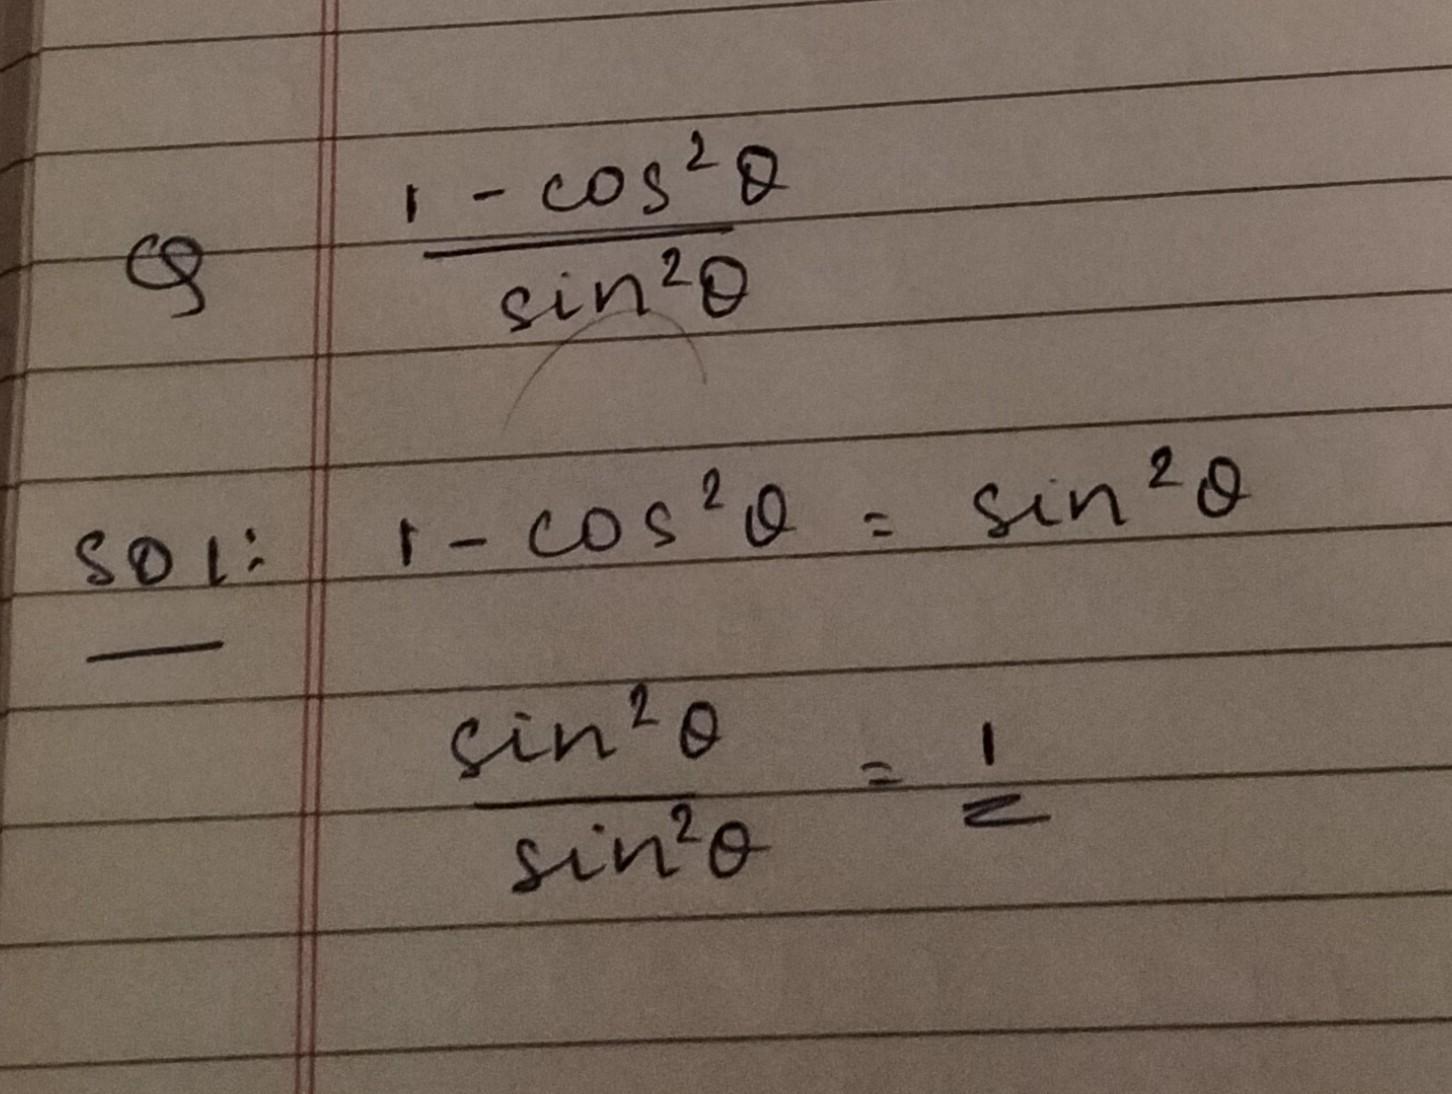 Q 1 - cos²θ / sin²θ
Sol: 1 - cos²θ = sin²θ
sin²θ / sin²θ = 1